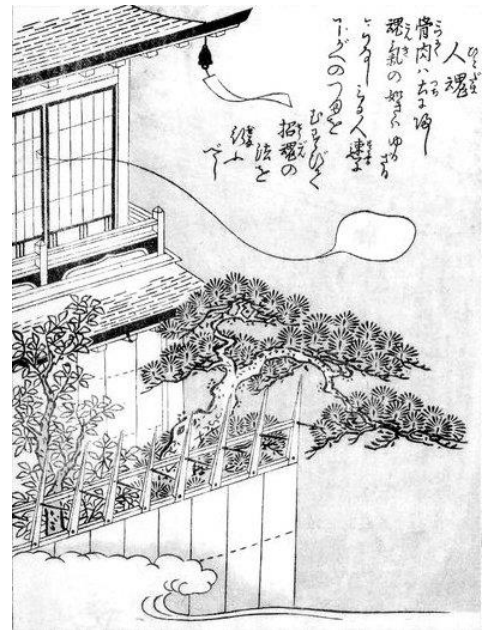 人魂
骨肉ハ土に帰し
魂氣の如きハゆかざる
ことなしみる人速に
下がへのつまを
むすびて
招魂の
法を
行ふ
べし